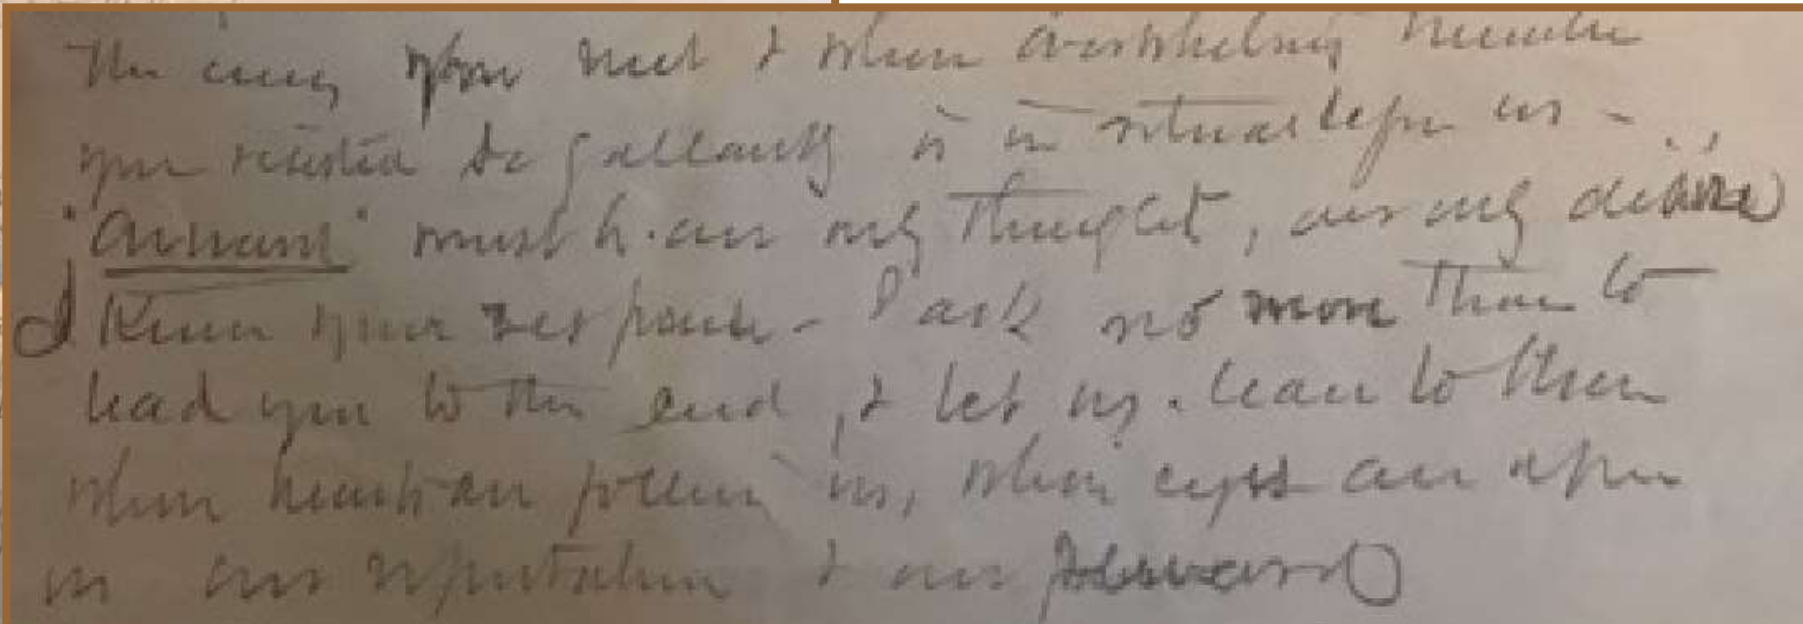 The enemy you met & whose overwhelming numbers
you resisted so gallantly is in retreat before us -
"Onward" must be our only thought, our only desire
I know your response - I ask no more than to
lead you to the end, & let us . to those
whose hearts are following us, whose eyes are upon
us our reputation & our